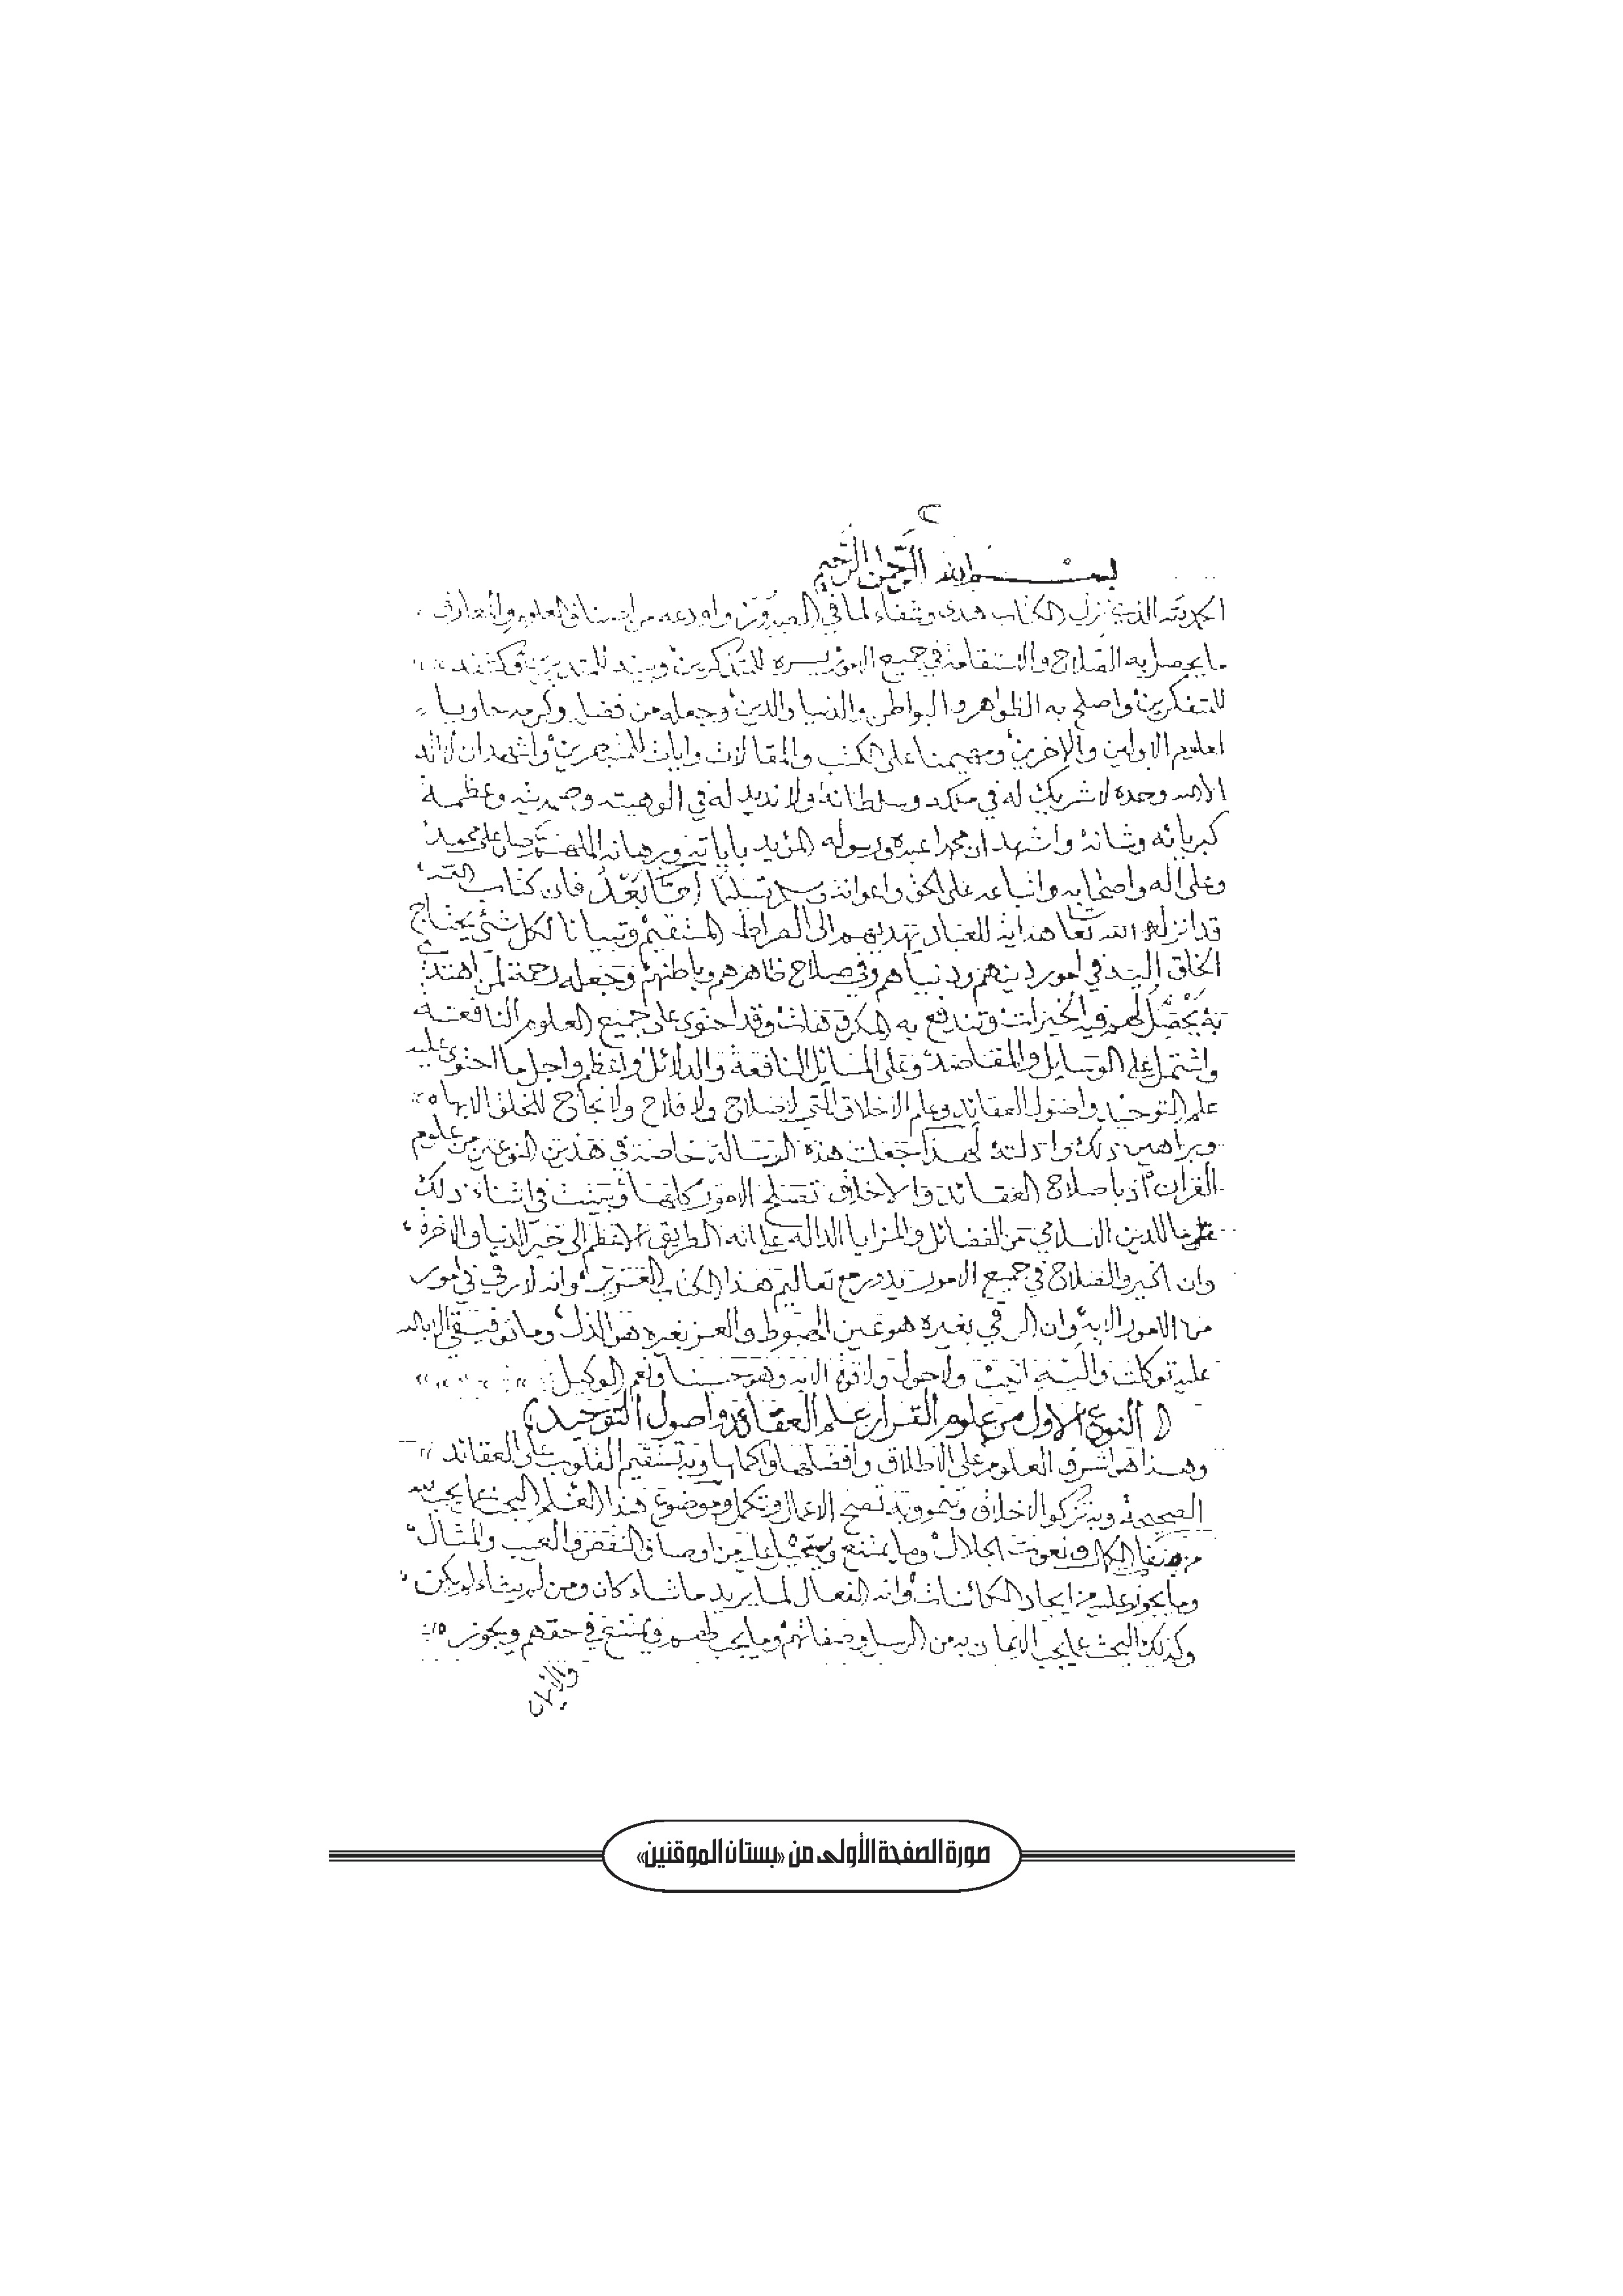 ٢
بسم الله الرحمن الرحيم
الحمد لله الذي نزل الكتاب هدى وشفاء لما في الصدور واودعه من اصناف العلوم والمعارف
ما يحصل به الصلاح والاستقامة في جميع الامور يسره للمتذكرين وبينه للمتدبرين وكشفه
للمتفكرين واصلح به الظواهر والبواطن والدنيا والدين وجعله من فضله وكرمه حاويا
لعلوم الاولين والاخرين ومهيمنا على الكتب والمقالات وايات للمتبصرين واشهد ان لا اله
الا الله وحده لا شريك له في ملكه وسلطانه ولا نديد له في الوهيته وصمديته وعظمة
كبريائه وشانه واشهد ان محمدا عبده ورسوله المؤيد باياته وبرهانه اللهم صل على محمد
وعلى اله واصحابه واتباعه على الحق واعوانه وسلم تسليما اما بعد فان كتاب الله
قد انزله الله تعا هداية للعباد تهديهم الى الصراط المستقيم وتبيانا لكل شيء يحتاج
الخلق اليه في امور دينهم ودنياهم وفي صلاح ظاهرهم وباطنهم وجعله رحمة لمن اهتدى
به يحصل لهم فيه الخيرات وتندفع به المكروهات وقد احتوى على جميع العلوم النافعة
واشتمل على الوسايل والمقاصد وعلى المسائل النافعة والدلائل واعظم واجل ما احتوى عليه
علم التوحيد واصول العقائد وعلم الاخلاق التي لا صلاح ولا فلاح ولا نجاح للخلق الا بها
وبراهين ذلك وادلته لهذا جعلت هذه الرسالة خاصة في هذين النوعين من علوم
القران اذ باصلاح العقائد والاخلاق تصلح الامور كلها وبينت في اثناء ذلك
ما للدين الاسلامي من الفضائل والمزايا الدالة على انه الطريق الاعظم الى خير الدنيا والاخرة
وان الخير والصلاح في جميع الامور يدور مع تعاليم هذا الكتاب العزيز وانه لا رقي في امور
من الامور الا به وان الرقي بغيره هو عين الهبوط والعز بغيره هو الذل وما توفيقي الا بالله
عليه توكلت واليه انيب ولا حول ولا قوة الا به وهو حسبنا ونعم الوكيل
( النوع الاول من علوم القران علم العقائد واصول التوحيد )
وهذا هو اشرف العلوم على الاطلاق وافضلها واكملها وبه تستقيم القلوب على العقائد
الصحيحة وبه تزكو الاخلاق وتنمو وبه تصح الاعمال وتكمل وموضوع هذا العلم البحث عما يجب لله
من صفات الكمال ونعوت الجلال وما يمتنع ويستحيل عليه من اوصاف النقص والعيب والمثال
وما يجوز عليه من ايجاد الكائنات وانه الفعال لما يريد ما شاء كان وما لم يشاء لم يكن
وكذلك البحث عما يجب الايمان به من الرسل وصفاتهم وما يجب لهم ويمتنع في حقهم ويجوز
والايمان
صورة الصفحة الأولى من «بستان الموقنين»